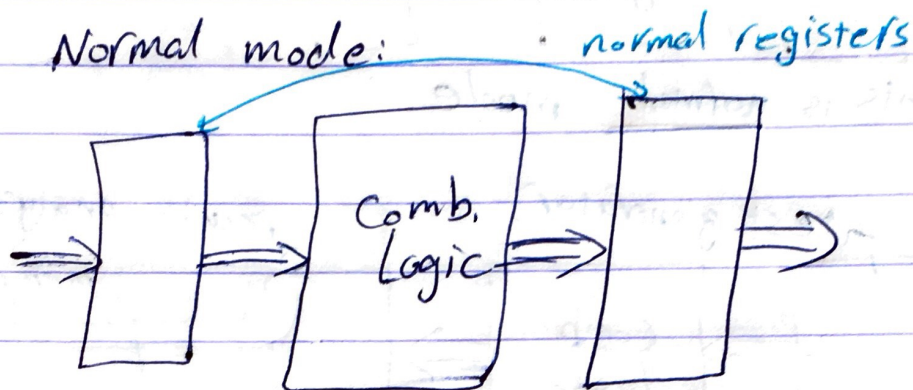 Normal mode: normal registers
Comb.
Logic